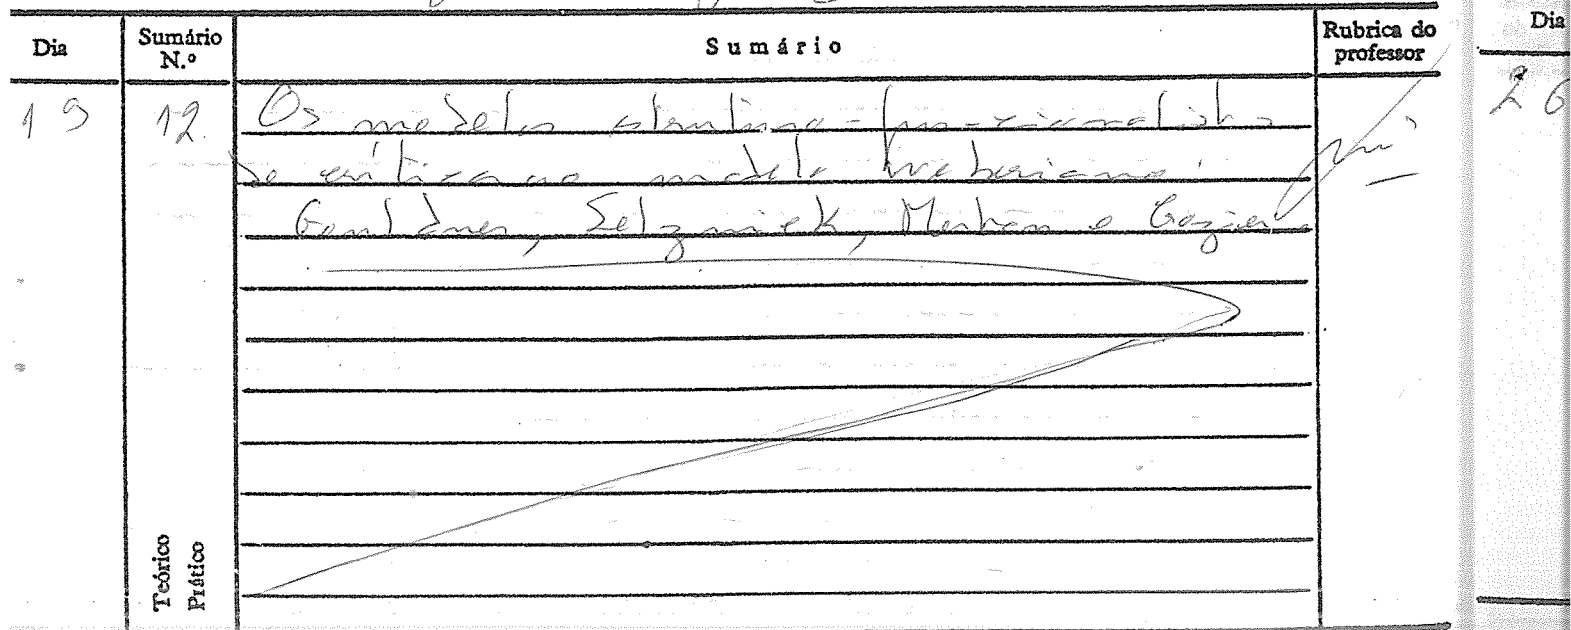 Dia Sumário N.º Sumário Rubrica do professor Dia
19 12 Os modelos estruturo-funcionalistas 26
de crítica ao modelo weberiano:
Gouldner, Selznick, Merton e Crozier
Teórico
Prático